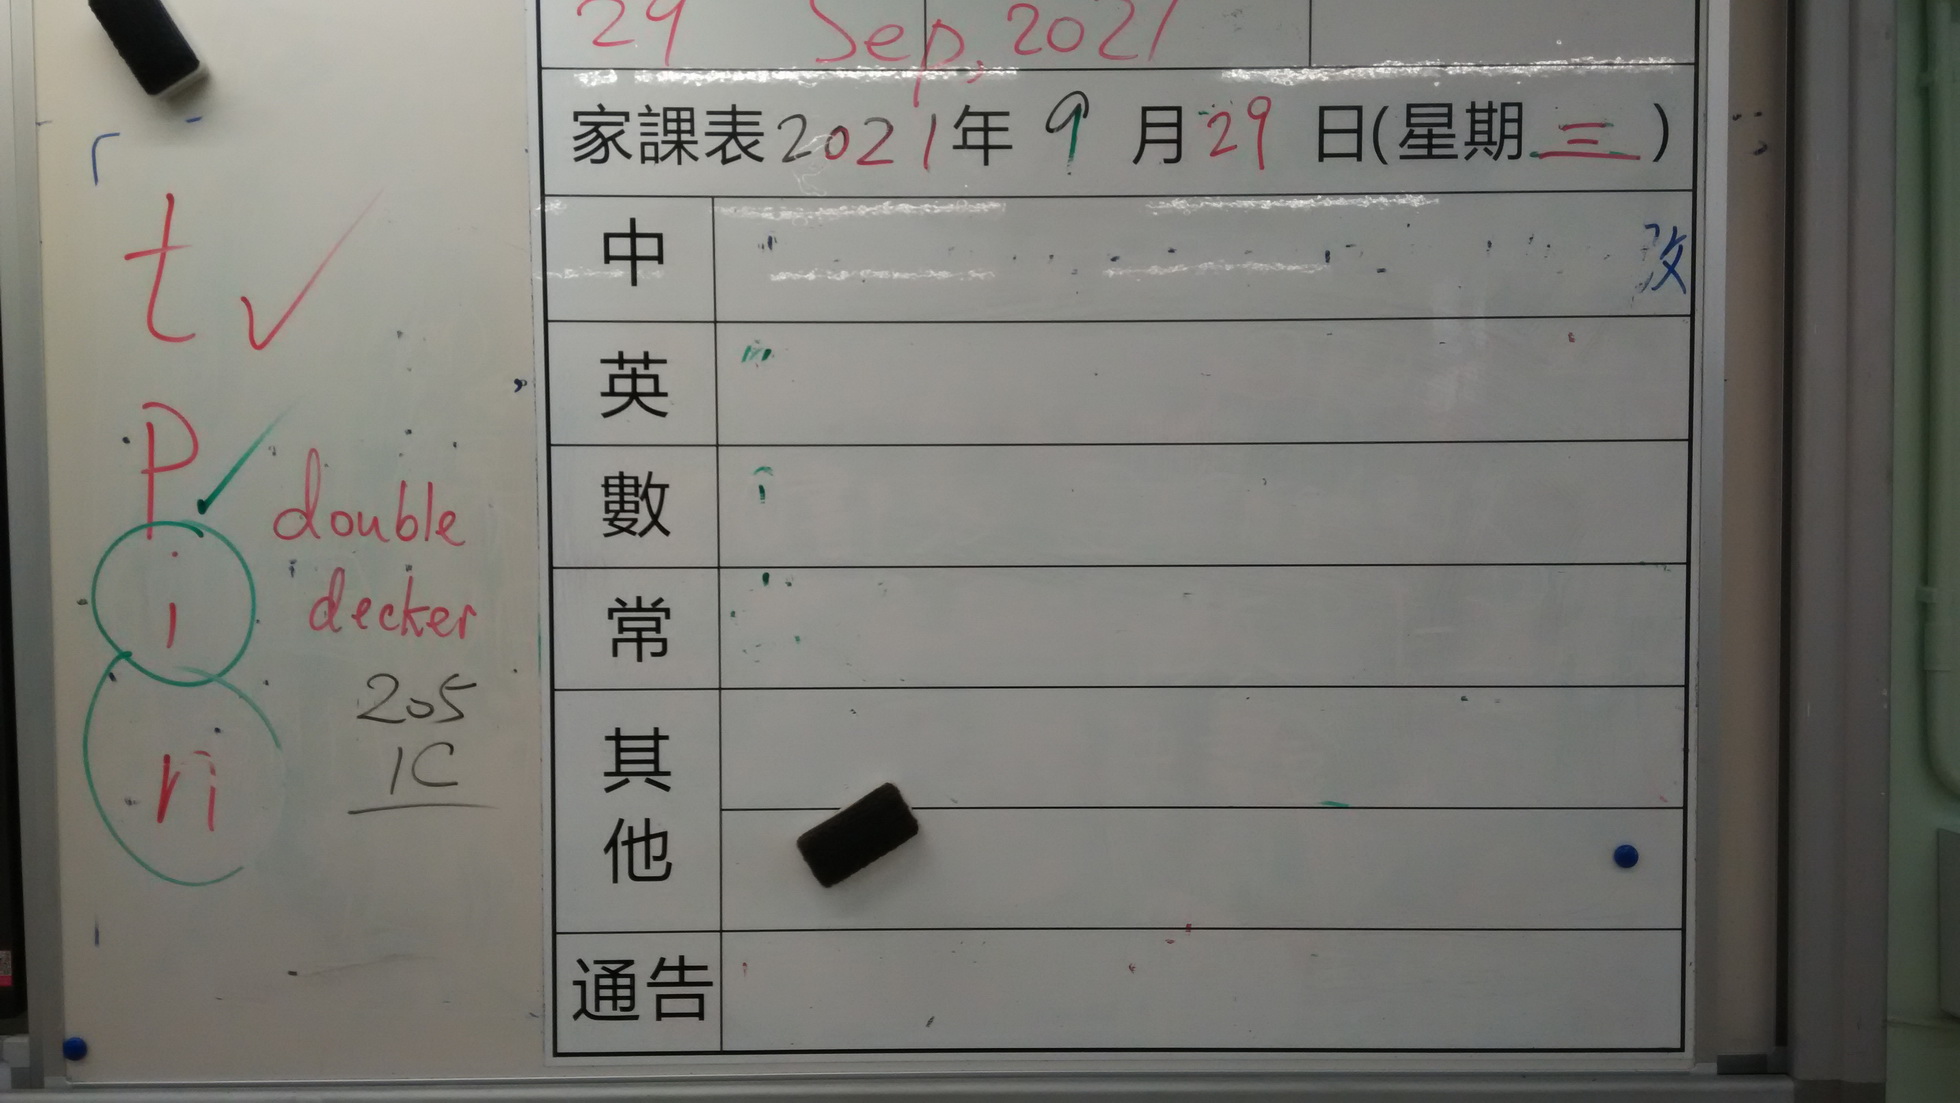 29 Sep, 2021
家課表2021年9月29日(星期三)
中 改
英
數
常
其他
通告
t ✓
p ✓
i
n
double
decker
205
1C